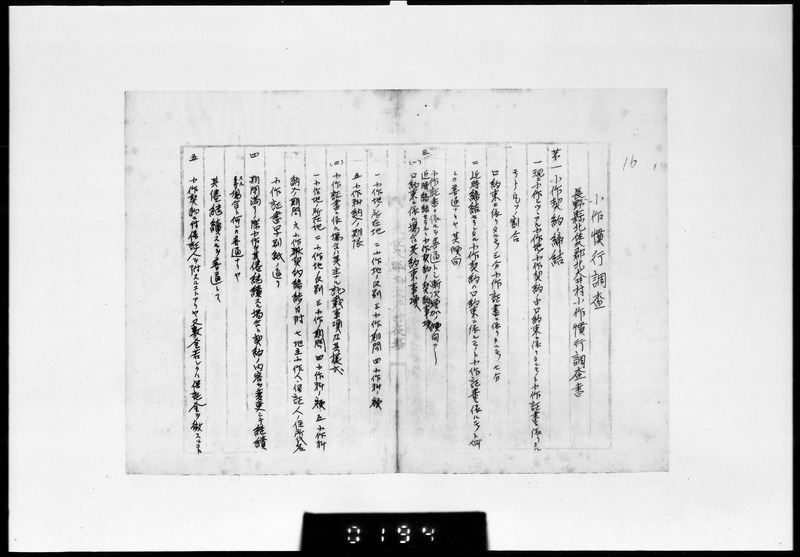 16
小作慣行調査
長野縣北佐久郡北大井村小作慣行調査書
第一 小作契約ノ締結
一 現ニ小作シツヽアル小作地小作契約中口約束ニ依リタルモノト小作証書ニ依リタル
モノトノ割合
口約束ニ依リタルモノ三分小作証書ニ依リタルモノ七分
二 近時締結セラルヽ小作契約ハ口約束ニ依ルモノト小作証書ニ依ルモノト何
レカ普通ナリヤ其傾向
小作証書ニ依ルヲ普通トシ漸次増加ノ傾向アリ
三 近時締結セラルヽ小作契約ノ契約事項
(一) 口約束ニ依ル場合ハ其約束事項
一 小作地ノ所在地 二 小作地ノ反別 三 小作期間 四 小作料ノ額
五 小作料納入ノ期限
(二) 小作証書ニ依ル場合ハ其主ナル記載事項及其様式
一 小作地ノ所在地 二 小作地ノ反別 三 小作ノ期間 四 小作料ノ額 五 小作料
納入ノ期間 六 小作契約締結ノ日附 七 地主小作人保証人ノ住所氏名
小作証書ハ別紙ノ通リ
四 期間満了ノ際小作ヲ其儘継續スル場合ト契約ノ内容ヲ変更シテ継續
スル場合ト何レカ普通ナリヤ
其儘継續スルヲ普通トス
五 小作契約ニ付保証人ヲ附スルコトアリヤ又敷金若シクハ保証金ヲ徴スルコト
0194